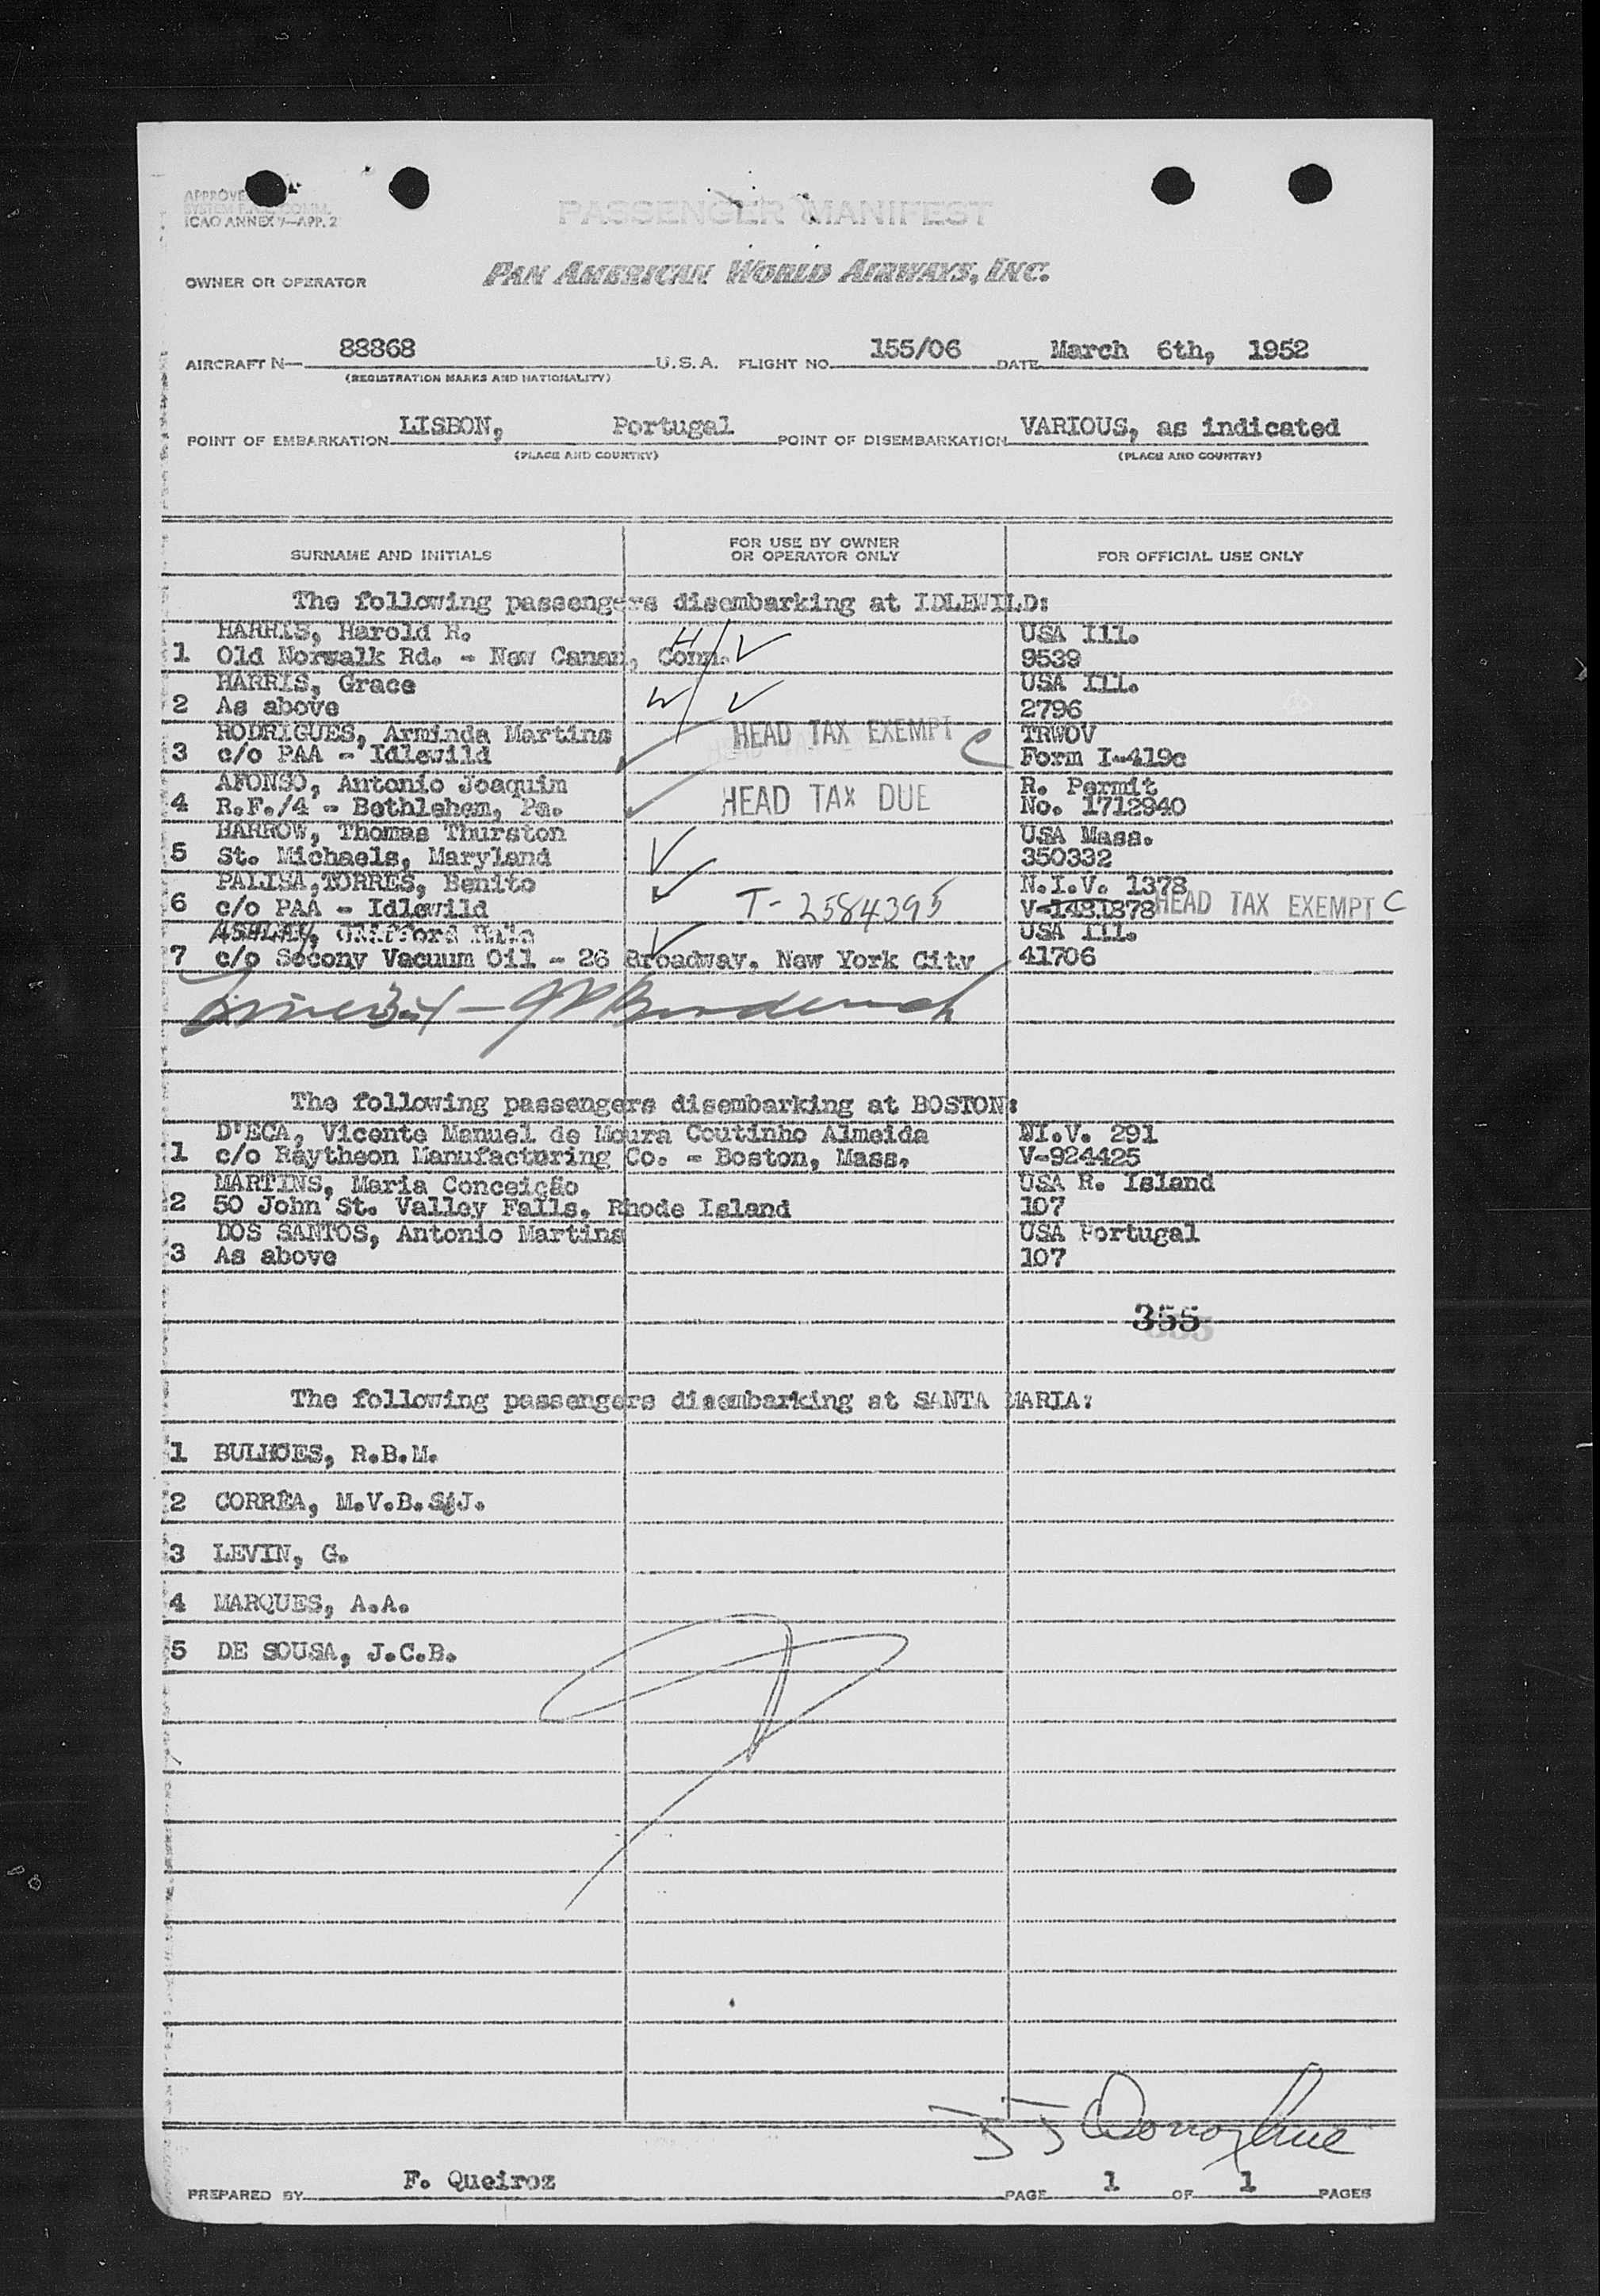 APPROVE
SYSTEM F.A.L. COMM.
ICAO ANNEX 9—APP. 2
PASSENGER MANIFEST
OWNER OR OPERATOR PAN AMERICAN WORLD AIRWAYS, INC.
AIRCRAFT N— 88868 U.S.A. FLIGHT NO. 155/06 DATE March 6th, 1952
(REGISTRATION MARKS AND NATIONALITY)
POINT OF EMBARKATION LISBON, Portugal POINT OF DISEMBARKATION VARIOUS, as indicated
(PLACE AND COUNTRY) (PLACE AND COUNTRY)
SURNAME AND INITIALS FOR USE BY OWNER OR OPERATOR ONLY FOR OFFICIAL USE ONLY
The following passengers disembarking at IDLEWILD:
HARRIS, Harold R. USA Ill.
1 Old Norwalk Rd. - New Canan, Conn. 9539
HARRIS, Grace USA Ill.
2 As above 2796
RODRIGUES, Arminda Martins HEAD TAX EXEMPT C TRWOV
3 c/o PAA - Idlewild Form I-419c
AFONSO, Antonio Joaquim R. Permit
4 R.F./4 - Bethlehem, Pa. HEAD TAX DUE No. 1712940
BARROW, Thomas Thurston USA Mass.
5 St. Michaels, Maryland 350332
PALISA,TORRES, Benito N.I.V. 1378
6 c/o PAA - Idlewild T-2584395 V-1481878 HEAD TAX EXEMPT C
USA Ill.
7 c/o Socony Vacuum Oil - 26 Broadway. New York City 41706
The following passengers disembarking at BOSTON:
D'ECA, Vicente Manuel de Moura Coutinho Almeida NI.V. 291
1 c/o Raytheon Manufacturing Co. - Boston, Mass. V-924425
MARTINS, Maria Conceição USA R. Island
2 50 John St. Valley Falls, Rhode Island 107
DOS SANTOS, Antonio Martins USA Portugal
3 As above 107
355
The following passengers disembarking at SANTA MARIA:
1 BULHOES, R.B.M.
2 CORRÊA, M.V.B.S.J.
3 LEVIN, G.
4 MARQUES, A.A.
5 DE SOUSA, J.C.B.
J J Donoghue
PREPARED BY F. Queiroz PAGE 1 OF 1 PAGES